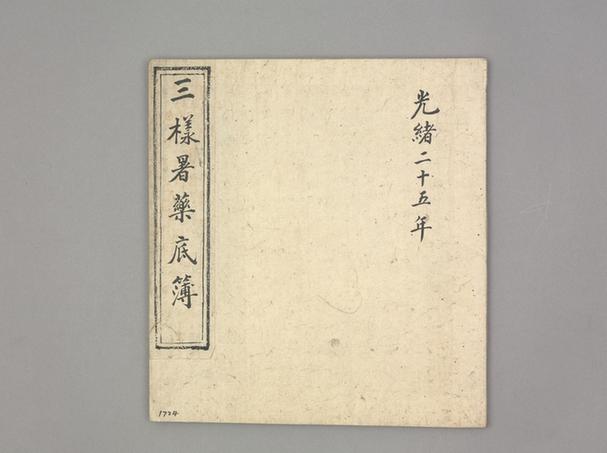 光緒二十五年
三樣暑藥底簿
1724